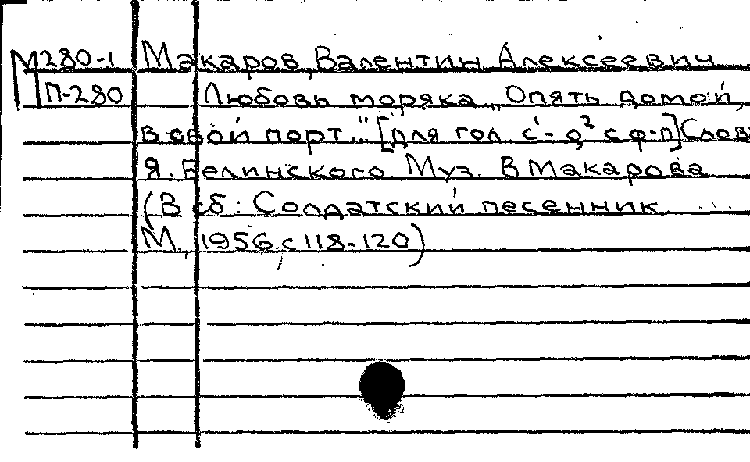 М280-1 Макаров, Валентин Алексеевич
П-280 Любовь моряка „Опять домой,
в свой порт..." [для гол. с'- g² с ф-п] Слов
Я. Белинского Муз. В Макарова
(В сб: Солдатский песенник ...
М., 1956, с 118-120)